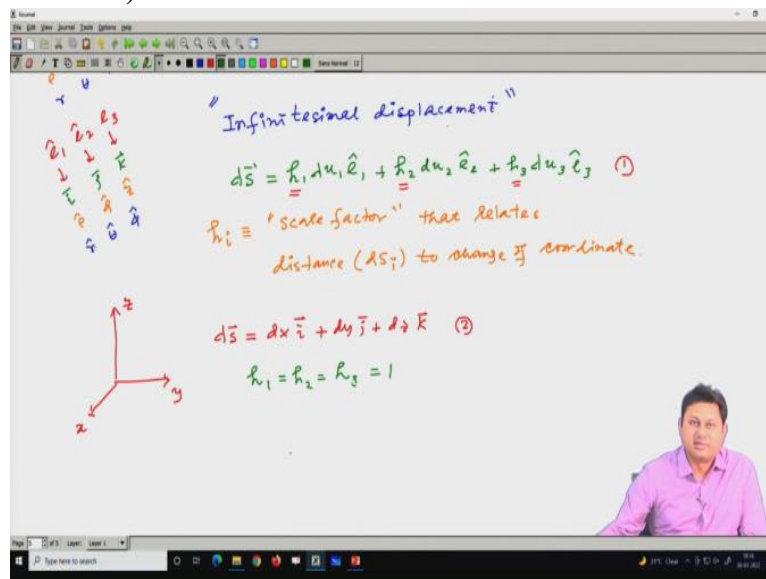 Xournal
File Edit View Journal Tools Options Help
Sans Normal 12
r θ
"Infinitesimal displacement"
ê1 ê2 ê3
↓ ↓ ↓
i j k
ρ̂ φ̂ ẑ
r̂ θ̂ φ̂
ds⃗ = h₁du₁ê₁ + h₂du₂ê₂ + h₃du₃ê₃ ①
hᵢ ≡ "scale factor" that relates
distance (dsᵢ) to change of coordinate.
z
ds⃗ = dx i⃗ + dy j⃗ + dz k⃗ ②
h₁ = h₂ = h₃ = 1
y
x
Page 5 of 5 Layer: Layer 1
Type here to search